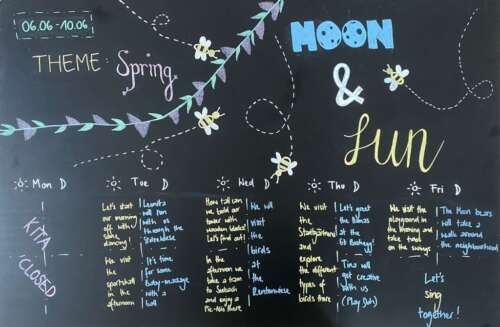 06.06-10.06
THEME: Spring
MOON
&
SUN
Mon D
Tue D
Wed D
Thu D
Fri D
KITA
CLOSED
Let's start
our morning
off with
some
dancing!
We visit
the
sportshall
in the
afternoon
will run
with us
through the
It's time
for some
Baby-massage
with a
ball
How tall can
we build our
tower with
wooden blocks?
Let's find out!
In the
afternoon we
take a tram
to
and enjoy a
there
We will
visit
the
birds
at
the
We visit
the
and
explore
the different
types of
birds there
Let's greet
the
at the
Tina will
get creative
with us
(Play Doh)
We visit the
playground in
the Morning and
take turns
on the swings
The Moon bears
will take a
walk around
the neighbourhood
Let's
sing
together!